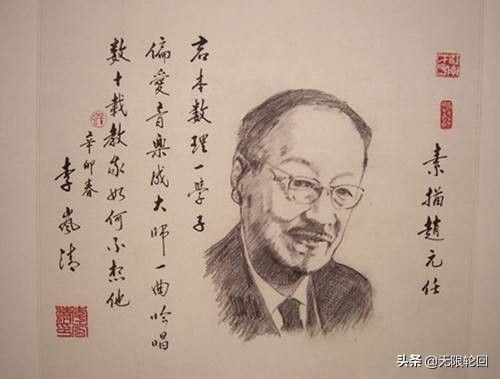 素描趙元任
君本数理一學子
偏愛音樂成大師一曲吟唱
数十載教我如何不想他
辛卯春
李嵐清
头条 @无限轮回